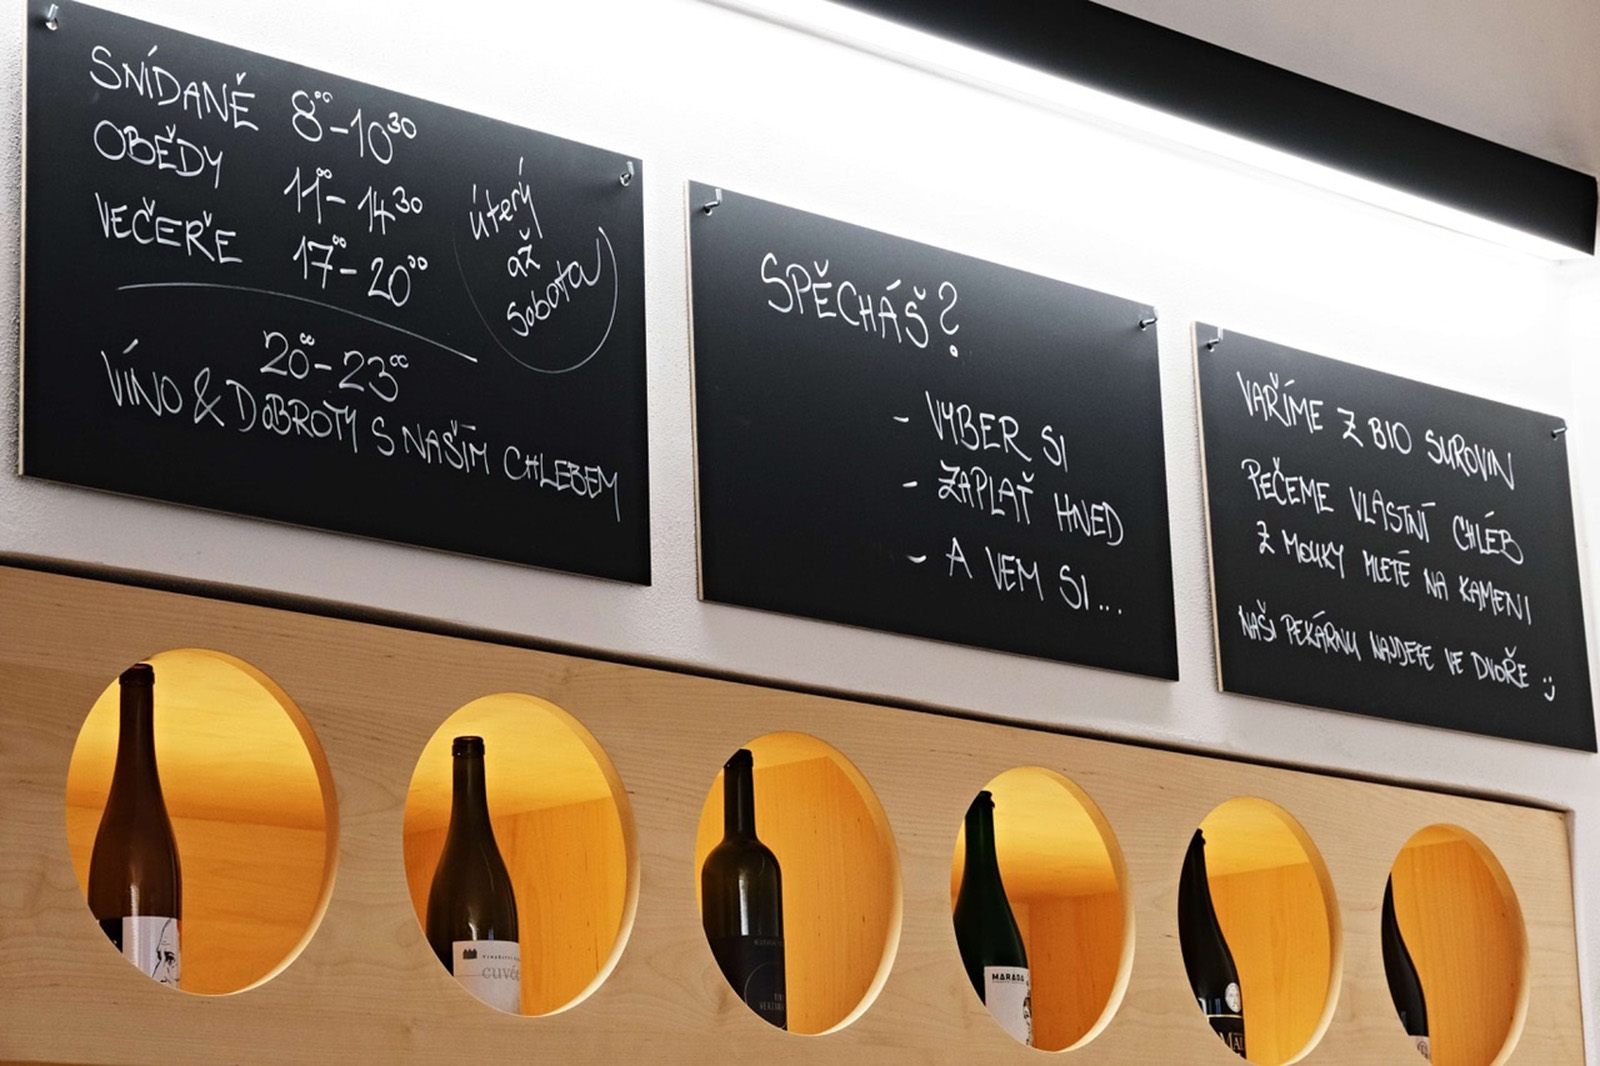 SNÍDANĚ 8⁰⁰-10³⁰
OBĚDY 11⁰⁰-14³⁰
VEČEŘE 17⁰⁰-20⁰⁰
úterý
až
sobota
20⁰⁰-23⁰⁰
VÍNO & DOBROTY S NAŠÍM CHLEBEM
SPĚCHÁŠ?
- VYBER SI
- ZAPLAŤ HNED
- A VEM SI...
VAŘÍME Z BIO SUROVIN
PEČEME VLASTNÍ CHLÉB
Z MOUKY MLETÉ NA KAMENI
NAŠI PEKÁRNU NAJDETE VE DVOŘE :)
cuvée
MARADA